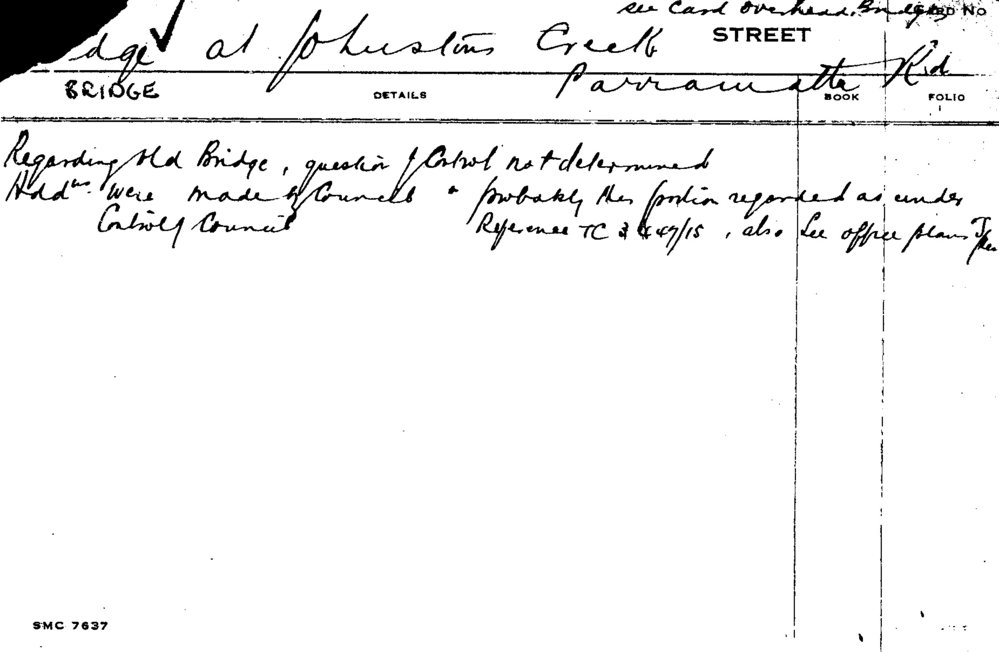 see Card Overhead Bridges CARD No
dge at Johnstons Creek STREET
Parramatta Rd
BRIDGE DETAILS BOOK FOLIO
Regarding Old Bridge, question of Control not determined
Addns. were made by Council & probably this portion regarded as under
Control of Council Reference TC 3447/15, also See office plans
SMC 7637